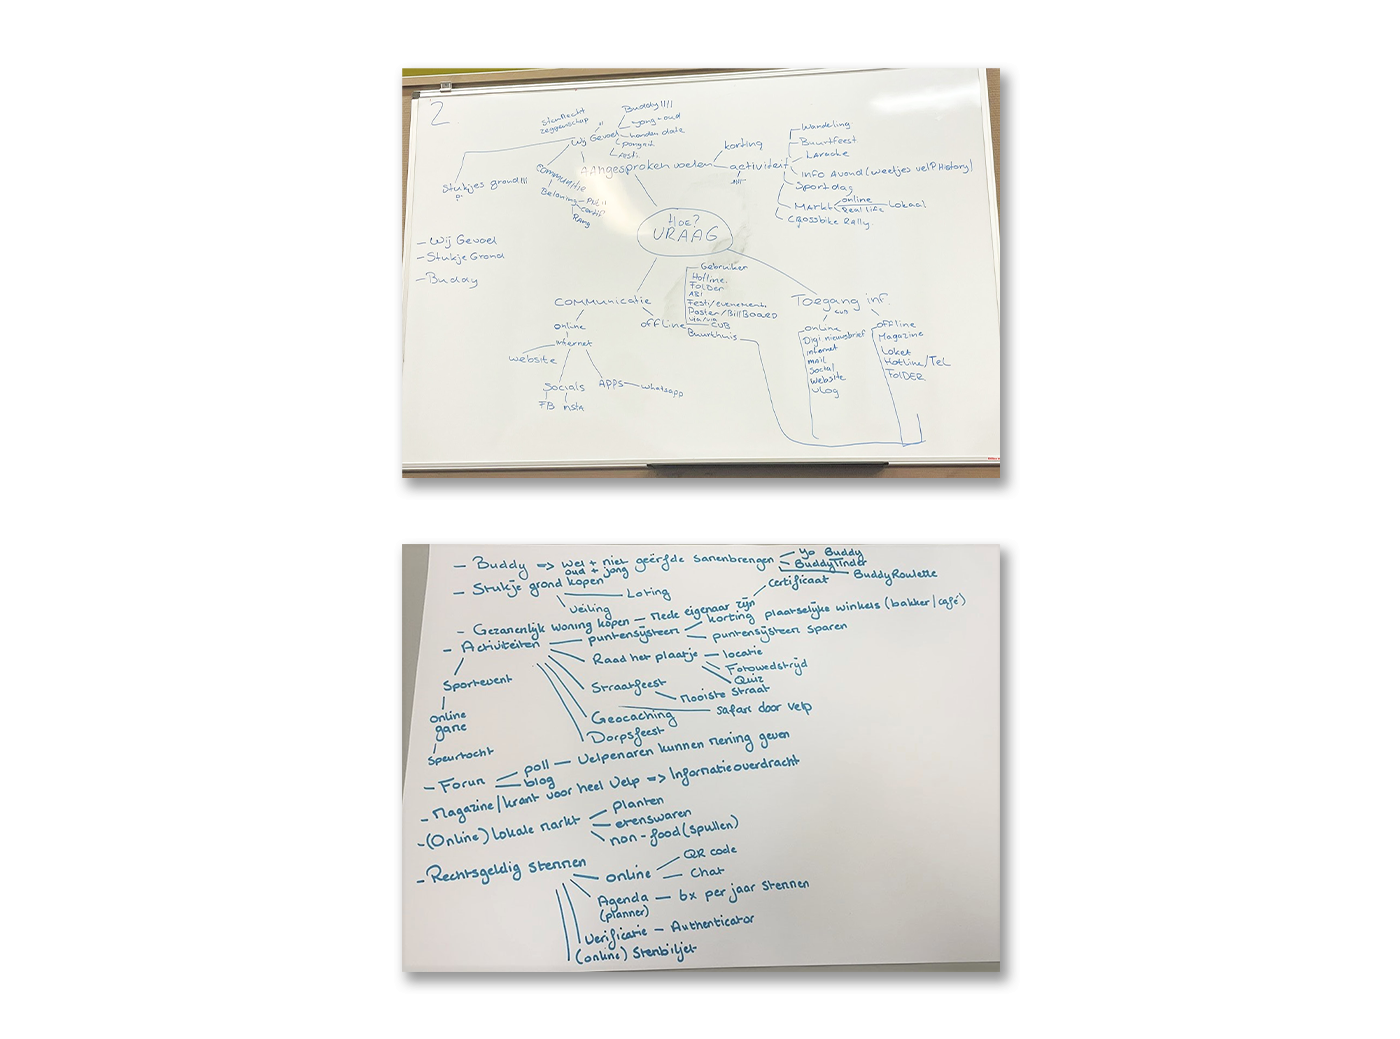 2
StemRecht
zeggenschap
Wij Gevoel
"
Buddy!!!!
Jong-oud
honden date
Festi
Aangesproken voelen
korting
activiteit
Wandeling
Buurtfeest
Info Avond (weetjes velp History)
Sportdag
Markt
online
Real life
Lokaal
Crossbike Rally
Stukjes grond!!!
Communitie
Beloning
certif
Rang
Hoe?
VRAAG
- Wij Gevoel
- Stukje Grond
- Buddy
Communicatie
online
internet
website
Socials
FB
insta
APPS
whatsapp
offline
Gebruiker
Hotline
Folder
ABI
Festi/evenement.
Poster/BillBoard
via/via
CUB
Buurthuis
Toegang inf.
online
Digi nieuwsbrief
internet
mail
Social
website
vlog
offline
Magazine
Loket
Hotline/Tel
FolDER
- Buddy => wel + niet geërfde samenbrengen
oud + jong
Yo Buddy
BuddyTinder
BuddyRoulette
- Stukje grond kopen
Loting
Veiling
certificaat
- Gezamenlijk woning kopen — Mede eigenaar zijn
- Activiteiten
puntensysteem
korting plaatselijke winkels (bakker/café)
puntensysteem sparen
Raad het plaatje
locatie
Fotowedstrijd
Quiz
Sportevent
online
game
Speurtocht
Straatfeest
Mooiste straat
Geocaching
Safari door velp
Dorpsfeest
- Forum
poll — Velpenaren kunnen mening geven
blog
- Magazine/krant voor heel Velp => Informatieoverdracht
- (Online) lokale markt
planten
etenswaren
non-food (spullen)
- Rechtsgeldig stemmen
online
QR code
Chat
Agenda — 6x per jaar stemmen
(planner)
Verificatie — Authenticator
(online) Stembiljet